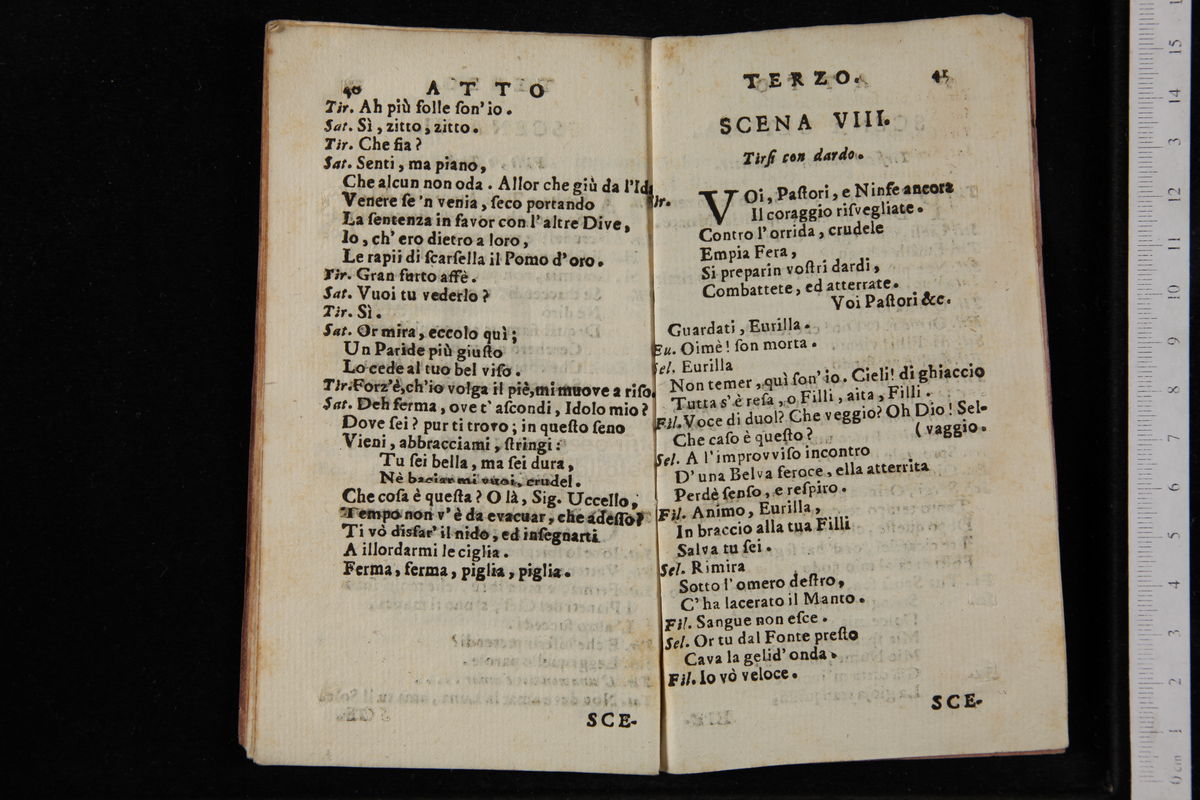 40 ATTO
Tir. Ah più folle ſon' io.
Sat. Sì, zitto, zitto.
Tir. Che ſia?
Sat. Senti, ma piano,
Che alcun non oda. Allor che giù da l'Ida
Venere ſe 'n venia, ſeco portando
La ſentenza in favor con l'altre Dive,
Io, ch' ero dietro a loro,
Le rapii di ſcarſella il Pomo d'oro.
Tir. Gran furto affè.
Sat. Vuoi tu vederlo?
Tir. Sì.
Sat. Or mira, eccolo quì;
Un Paride più giuſto
Lo cede al tuo bel viſo.
Tir. Forz'è, ch'io volga il piè, mi muove a riſo.
Sat. Deh ferma, ove t' aſcondi, Idolo mio?
Dove ſei? pur ti trovo; in queſto ſeno
Vieni, abbracciami, ſtringi:
Tu ſei bella, ma ſei dura,
Nè baciar mi vuoi, crudel.
Che coſa è queſta? O là, Sig. Uccello,
Tempo non v' è da evacuar, che adeſſo?
Ti vò disfar' il nido, ed inſegnarti
A illordarmi le ciglia.
Ferma, ferma, piglia, piglia.
SCE-
TERZO. 41
SCENA VIII.
Tirſi con dardo.
Tir. VOi, Paſtori, e Ninfe ancora
Il coraggio riſvegliate.
Contro l' orrida, crudele
Empia Fera,
Si preparin voſtri dardi,
Combattete, ed atterrate.
Voi Paſtori &c.
Guardati, Eurilla.
Eu. Oimè! ſon morta.
Sel. Eurilla
Non temer, quì ſon' io. Cieli! di ghiaccio
Tutta s' è reſa, o Filli, aita, Filli.
Fil. Voce di duol? Che veggio? Oh Dio! Sel-
Che caſo è queſto? (vaggio.
Sel. A l'improvviſo incontro
D' una Belva feroce, ella atterrita
Perdè ſenſo, e reſpiro.
Fil. Animo, Eurilla,
In braccio alla tua Filli
Salva tu ſei.
Sel. Rimira
Sotto l' omero deſtro,
C' ha lacerato il Manto.
Fil. Sangue non eſce.
Sel. Or tu dal Fonte preſto
Cava la gelid' onda.
Fil. Io vò veloce.
SCE-